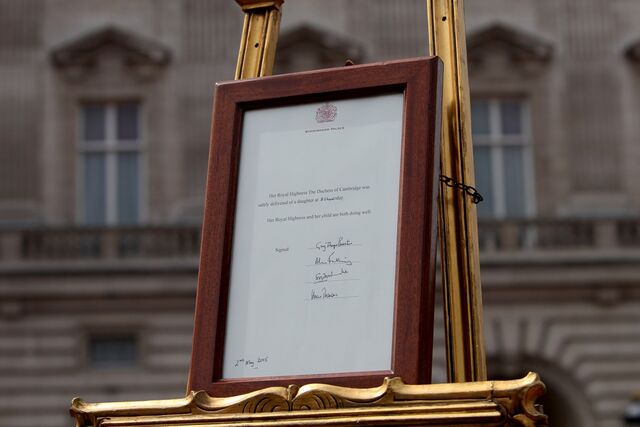 BUCKINGHAM PALACE
Her Royal Highness The Duchess of Cambridge was
safely delivered of a daughter at
Her Royal Highness and her child are both doing well.
Signed
2nd May, 2015